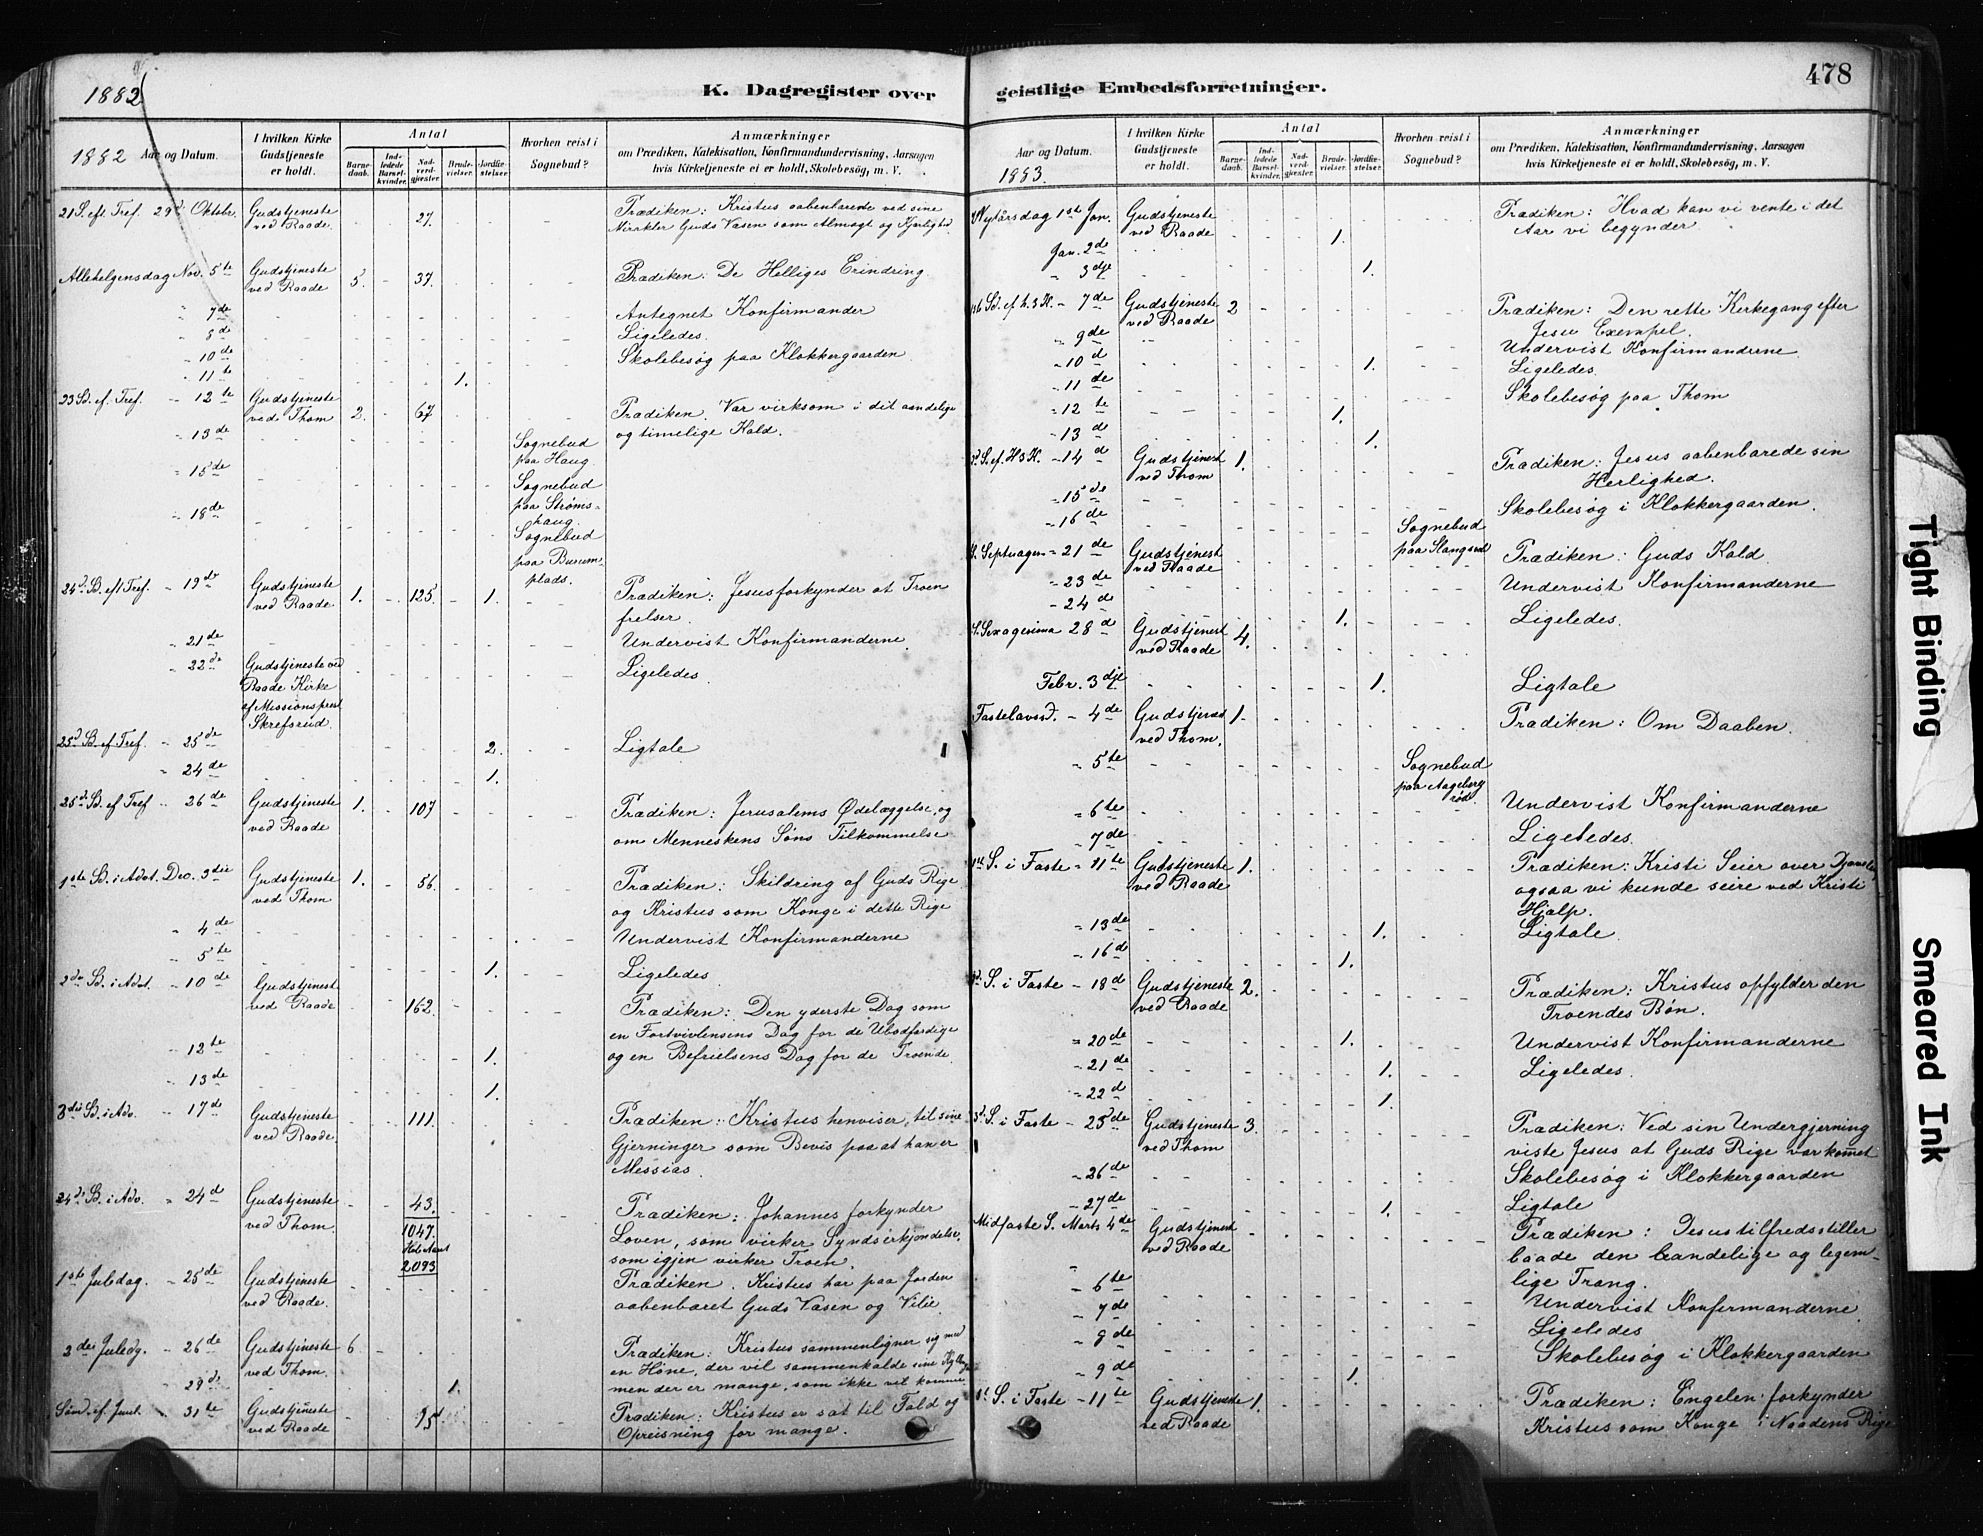 1882
K. Dagregister over
1882 Aar og Datum.
I hvilken Kirke Gudstjeneste er holdt.
Antal
Barnedaab.
Indledede Barselkvinder.
Nadverdgjester.
Brudevielser.
Jordfæstelser.
Hvorhen reist i Sognebud?
Anmærkninger
om Prædiken, Katekisation, Konfirmandundervisning, Aarsagen
hvis Kirketjeneste ei er holdt, Skolebesög, m. V.
21 S. eft. Tref. 29d Oktobr. Gudstjeneste ved Raade. 27. Prædiken: Kristus aabenbarede ved sine
Mirakler Guds Væsen som Almagt og Kjærlighed.
Allehelgensdag Nov. 5te Gudstjeneste ved Raade 5. 37. Prædiken: De Helliges Erindring.
" 7de Antegnet Konfirmander
" 8de Ligeledes.
" 10de Skolebesøg paa Klokkergaarden
" 11te 1.
23 Sd. ef. Tref. " 12te Gudstjeneste ved Thom 2. 67 Prædiken. Vær virksom i dit aandelige
og timelige Kald.
" 13de Sognebud paa Haug.
" 15de Sognebud paa Strømshaug.
" 18de Sognebud paa Burumplads.
24d S. eft Tref. " 19de Gudstjeneste ved Raade 1. 125. 1. Prædiken: Jesus forkynder at Troen
frelser.
" 21de Undervist Konfirmanderne.
" 22de Gudstjeneste ved Raade Kirke af Missionsprest Skrefsrud. Ligeledes.
25d S. ef Tref. " 25de 2. Ligtale
" 24de 1.
25d S. ef Tref " 26de Gudstjeneste ved Raade 1. 107 Prædiken: Jerusalems Ødelæggelse, og
om Menneskens Søns Tilkommelse
1ste S. i Advt. Dec. 3die Gudstjeneste ved Thom 1. 56. Prædiken: Skildring af Guds Rige
og Kristus som Konge i dette Rige
" 4de Undervist Konfirmanderne
" 5te 1. Ligeledes
2den S. i Advt. " 10de Gudstjenest ved Raade 162. Prædiken: Den yderste Dag som
en Fortvivlensens Dag for de Ubodfærdige
og en Befrielsens Dag for de Troende.
" 12te 1.
" 13de 1.
3die S. i Adv. " 17de Gudstjeneste ved Raade. 111. Prædiken: Kristus henviser til sine
Gjerninger som Bevis paa at han er
Messias.
S. i Adv. " 24d Gudstjeneste ved Thom. 43. Prædiken: Johannes forkynder
1047.
Loven, som virker Syndserkjendelse,
2093
som igjen virker Troen.
1ste Juledag. " 25de Gudstjeneste ved Raade. Prædiken. Kristus har paa Jorden
aabenbaret Guds Væsen og Vilie.
2den Juledg. " 26de Gudstjeneste ved Thom. 6 Prædiken: Kristus sammenligner sig med
en Høne, der vil sammenkalde sine
men der er mange, som ikke vil komme
" 29de 1.
Sønd. ef. Jul. " 31te Gudstjeneste ved Raade Prædiken: Kristus er sat til Fald og
Opreisning for mange.
geistlige Embedsforretninger.
478
Aar og Datum.
1883.
I hvilken Kirke Gudstjeneste er holdt.
Antal
Barnedaab.
Indledede Barselkvinder.
Nadverdgjester.
Brudevielser.
Jordfæstelser.
Hvorhen reist i Sognebud?
Anmærkninger
om Prædiken, Katekisation, Konfirmandundervisning, Aarsagen
hvis Kirketjeneste ei er holdt, Skolebesög, m. V.
Nytårsdag 1ste Jan. Gudstjeneste ved Raade Prædiken: Hvad kan vi vente i det
Aar vi begynder
Jan. 2de 1.
" 3dje 1.
Sd. ef. h. 3 K. - 7de Gudstjeneste ved Raade 2 Prædiken: Den rette Kirkegang efter
Jesu Exempel.
" 9de Undervist Konfirmanderne.
" 10d 1. Ligeledes.
" 11de Skolebesøg paa Thom
" 12te 1.
" 13de 1.
S. ef. H3K. - 14d Gudstjenest ved Thom 1. Prædiken: Jesus aabenbarede sin
Herlighed.
" 15de Skolebesøg i Klokkergaarden.
" 16de Sognebud paa Slangsrød
S. Septuagen - 21de Gudstjenest ved Raade Prædiken: Guds Kald
" 23de Undervist Konfirmanderne
" 24de 1. Ligeledes.
S. Sexagesima 28de Gudstjenest ved Raade 4.
Febr. 3dje 1. Ligtale
Fastelavnsd. - 4de Gudstjenest ved Thom. 1. Prædiken: Om Daaben.
" 5te Sognebud paa Aagebergrød.
" 6te Undervist Konfirmanderne
" 7de Ligeledes.
1ste S. i Faste - 11te Gudstjeneste ved Raade 1. Prædiken: Kristi Seier over
ogsaa vi kunde seire ved Kristi
Hjælp.
" 13de 1. Ligtale.
" 16de 1.
S. i Faste - 18d Gudstjeneste ved Raade 2. Prædiken: Kristus opfylder den
Troendes Bøn.
" 20de 1. Undervist Konfirmanderne
" 21de 1. Ligeledes.
" 22d 1.
3d. S. i Faste - 25de Gudstjeneste ved Thom 3. Prædiken: Ved sin Undergjerning
viste Jesus at Guds Rige var komet
" 26de Skolebesøg i Klokkergaarden
" 27de 1. Ligtale
Midfaste S. Marts 4de Gudstjenest ved Raade Prædiken: Jesus tilfredsstiller
baade den aandelige og legemlige
Trang.
" 6te Undervist Konfirmanderne
" 7de Ligeledes
" 8de Skolebesøg i Klokkergaarden
" 9de 1.
S. i Faste - 11te Gudstjeneste ved Raade 1. Prædiken: Engelen forkynder
Kristus som Konge i Naadens Rige
Tight Binding
Smeared Ink